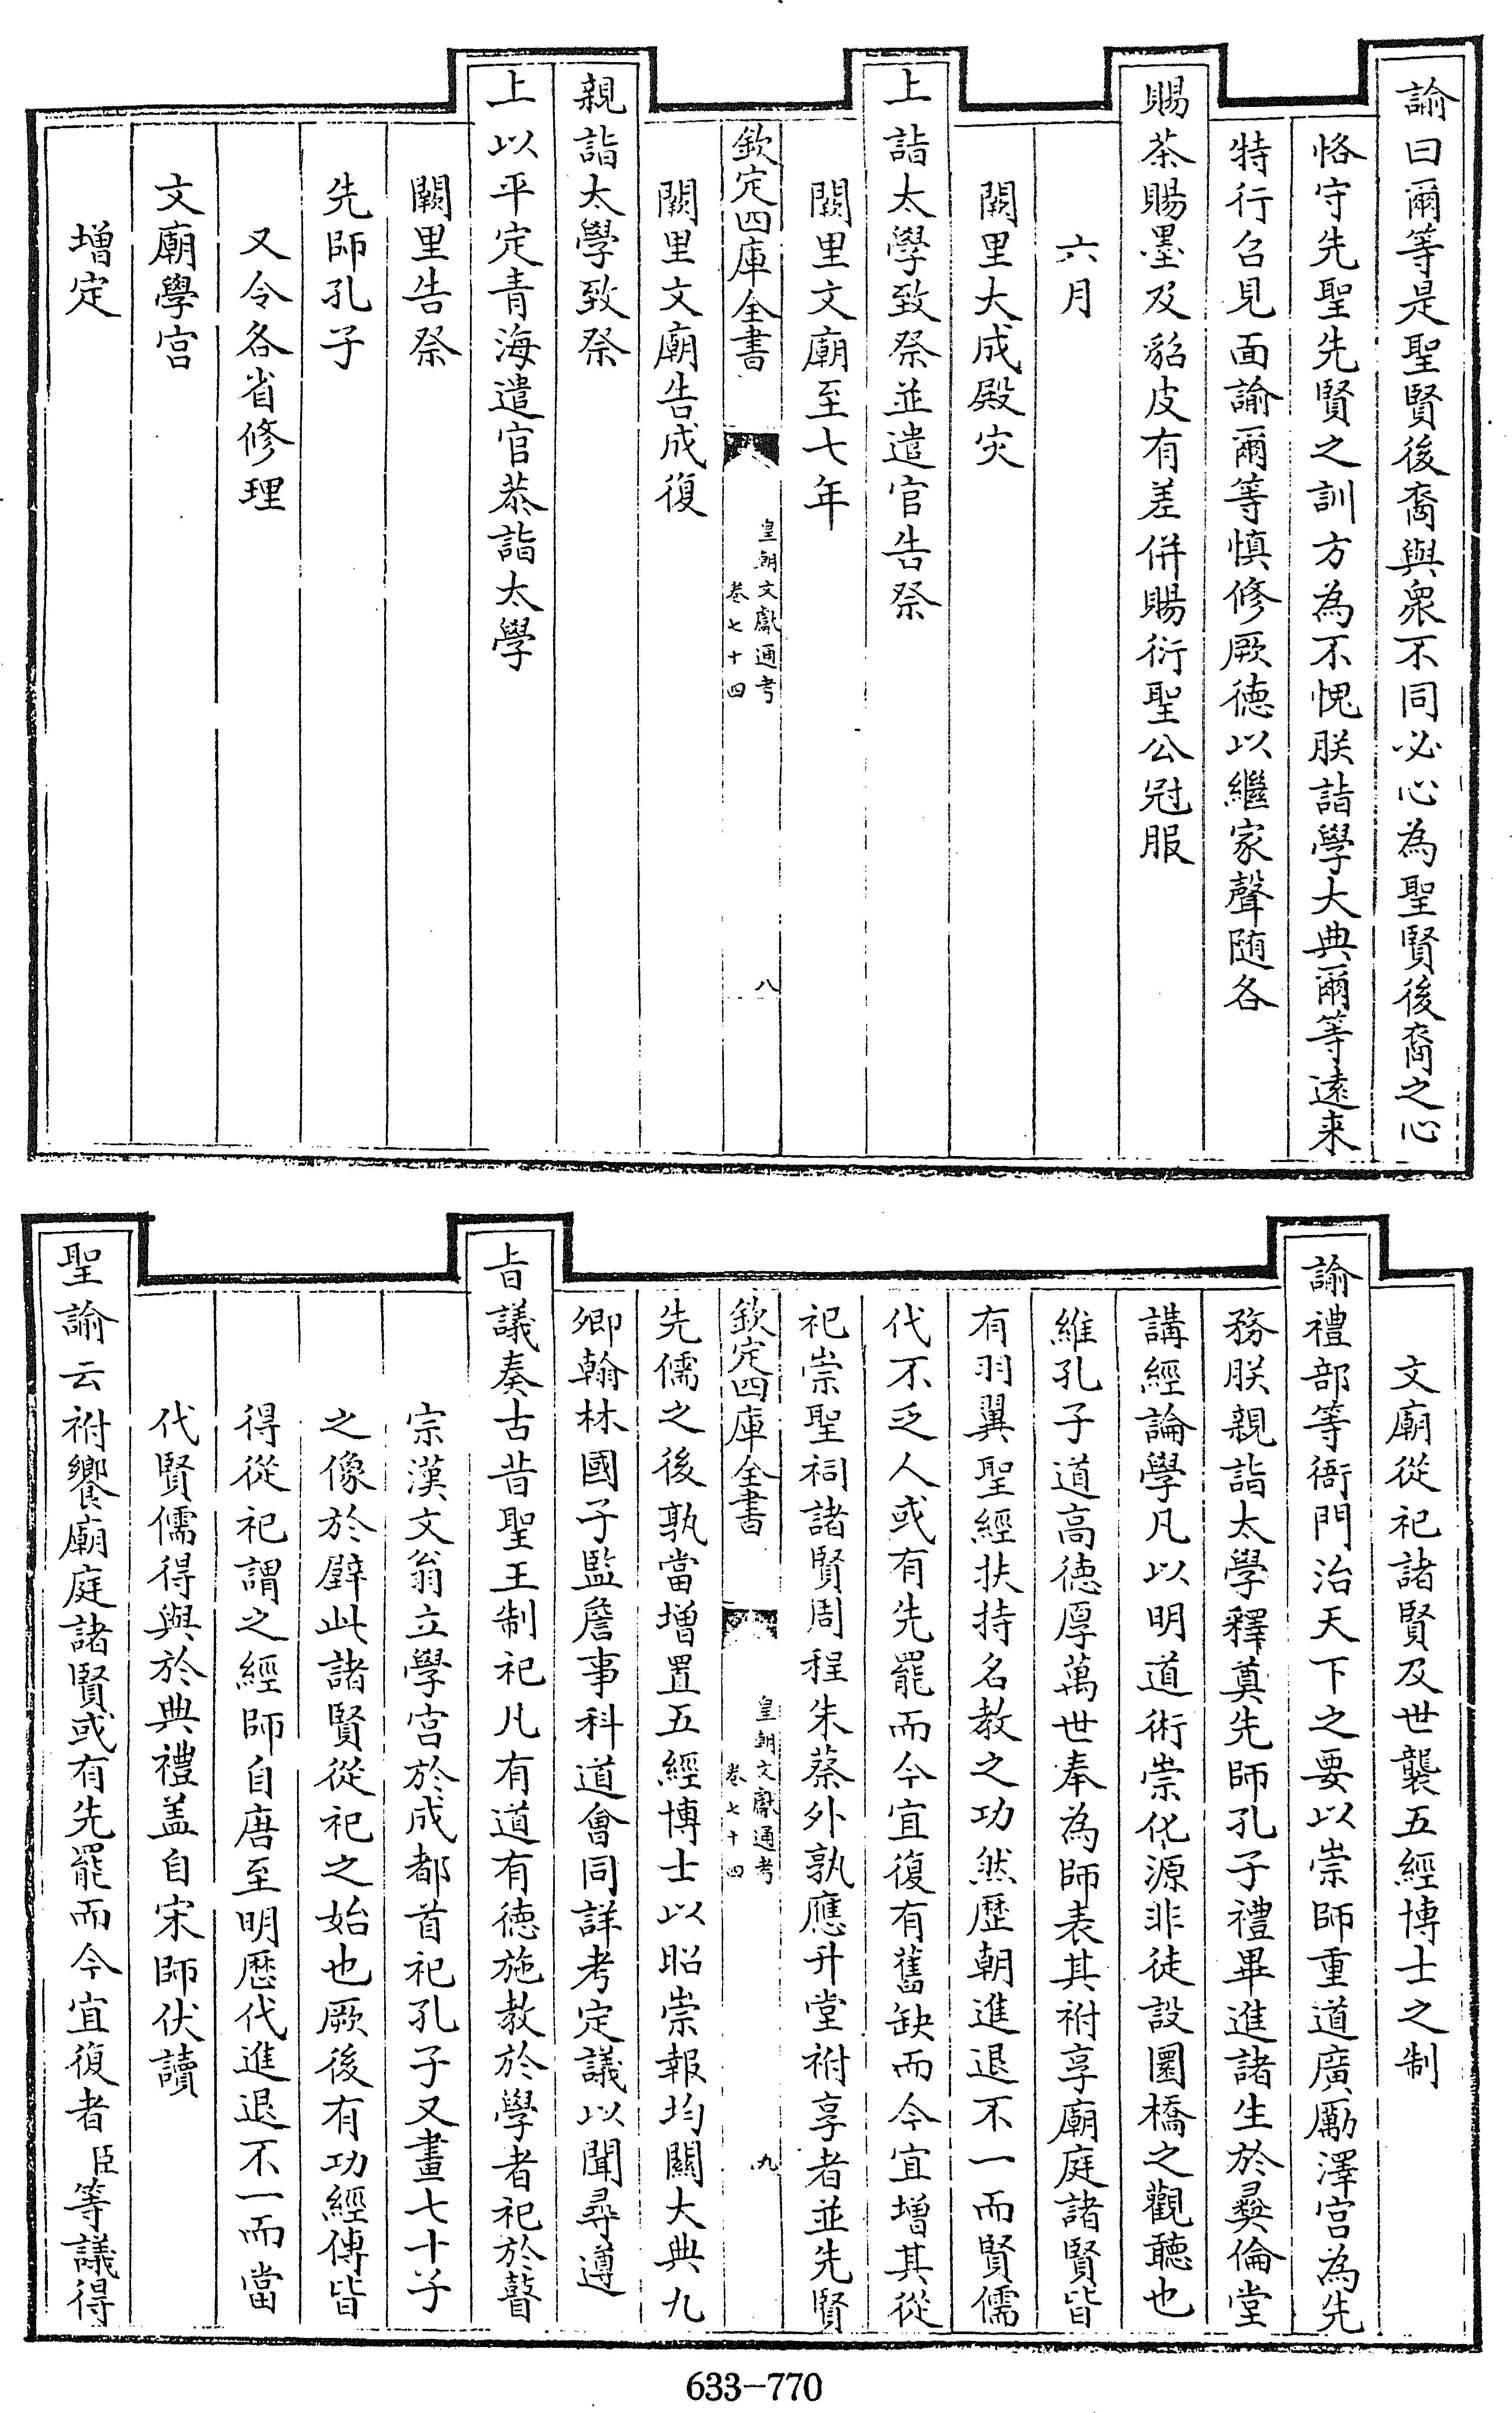 諭曰爾等是聖賢後裔與衆不同必心為聖賢後裔之心
恪守先聖先賢之訓方為不愧朕詣學大典爾等遠来
特行召見面諭爾等慎修厥德以繼家聲随各
賜茶賜墨及貂皮有差併賜衍聖公冠服
六月
闕里大成殿灾
上詣太學致祭並遣官告祭
闕里文廟至七年
欽定四庫全書
皇朝文獻通考
卷七十四
八
闕里文廟告成復
親詣太學致祭
上以平定青海遣官恭詣太學
闕里告祭
先師孔子
又令各省修理
文廟學宫
增定
文廟從祀諸賢及世襲五經博士之制
諭禮部等衙門治天下之要以崇師重道廣勵澤宫為先
務朕親詣太學釋奠先師孔子禮畢進諸生於彞倫堂
講經論學凡以明道術崇化源非徒設圜橋之觀聽也
維孔子道高德厚萬世奉為師表其祔享廟庭諸賢皆
有羽翼聖經扶持名教之功然歴朝進退不一而賢儒
代不乏人或有先罷而今宜復有舊缺而今宜增其從
祀崇聖祠諸賢周程朱蔡外孰應升堂祔享者並先賢
欽定四庫全書
皇朝文獻通考
卷七十四
九
先儒之後孰當增置五經博士以昭崇報均闗大典九
卿翰林國子監詹事科道會同詳考定議以聞尋遵
㫖議奏古昔聖王制祀凡有道有德施教於學者祀於瞽
宗漢文翁立學宫於成都首祀孔子又畫七十子
之像於壁此諸賢從祀之始也厥後有功經傳皆
得從祀謂之經師自唐至明歴代進退不一而當
代賢儒得與於典禮盖自宋師伏讀
聖諭云祔饗廟庭諸賢或有先罷而今宜復者臣等議得
633-770